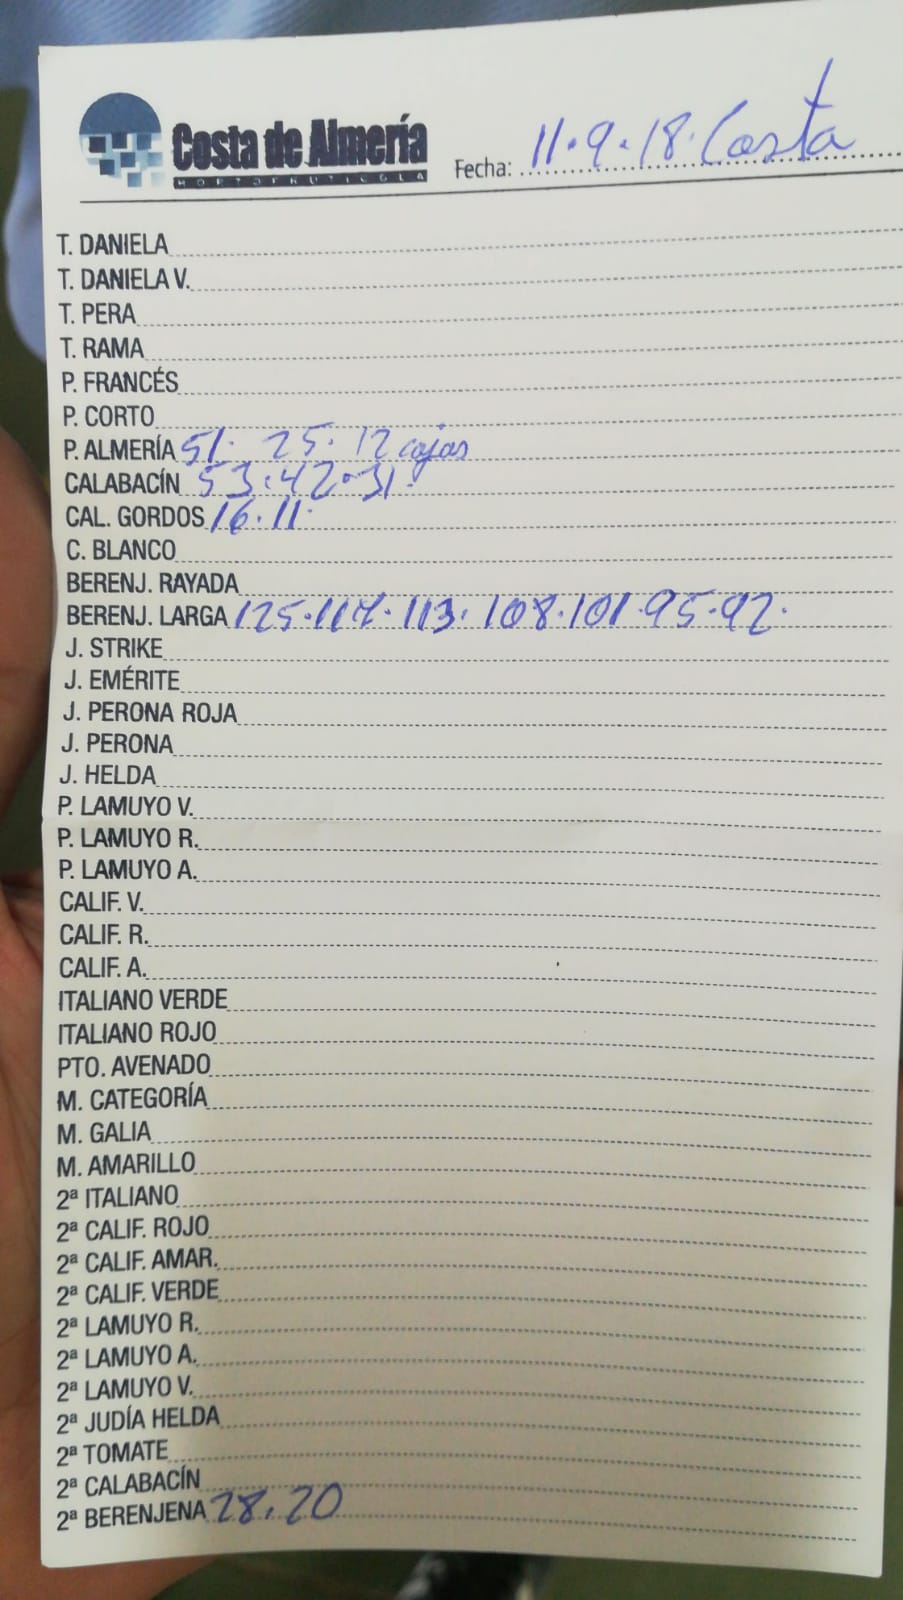 Costa de Almería
HORTOFRUTICOLA
Fecha: 11.9.18. Costa
T. DANIELA
T. DANIELA V.
T. PERA
T. RAMA
P. FRANCÉS
P. CORTO
P. ALMERÍA 51. 25. 12 cajas
CALABACÍN 53.42.31.
CAL. GORDOS 16.11.
C. BLANCO
BERENJ. RAYADA
BERENJ. LARGA 125.117.113.108.101.95.92.
J. STRIKE
J. EMÉRITE
J. PERONA ROJA
J. PERONA
J. HELDA
P. LAMUYO V.
P. LAMUYO R.
P. LAMUYO A.
CALIF. V.
CALIF. R.
CALIF. A.
ITALIANO VERDE
ITALIANO ROJO
PTO. AVENADO
M. CATEGORÍA
M. GALIA
M. AMARILLO
2ª ITALIANO
2ª CALIF. ROJO
2ª CALIF. AMAR.
2ª CALIF. VERDE
2ª LAMUYO R.
2ª LAMUYO A.
2ª LAMUYO V.
2ª JUDÍA HELDA
2ª TOMATE
2ª CALABACÍN
2ª BERENJENA 28.20